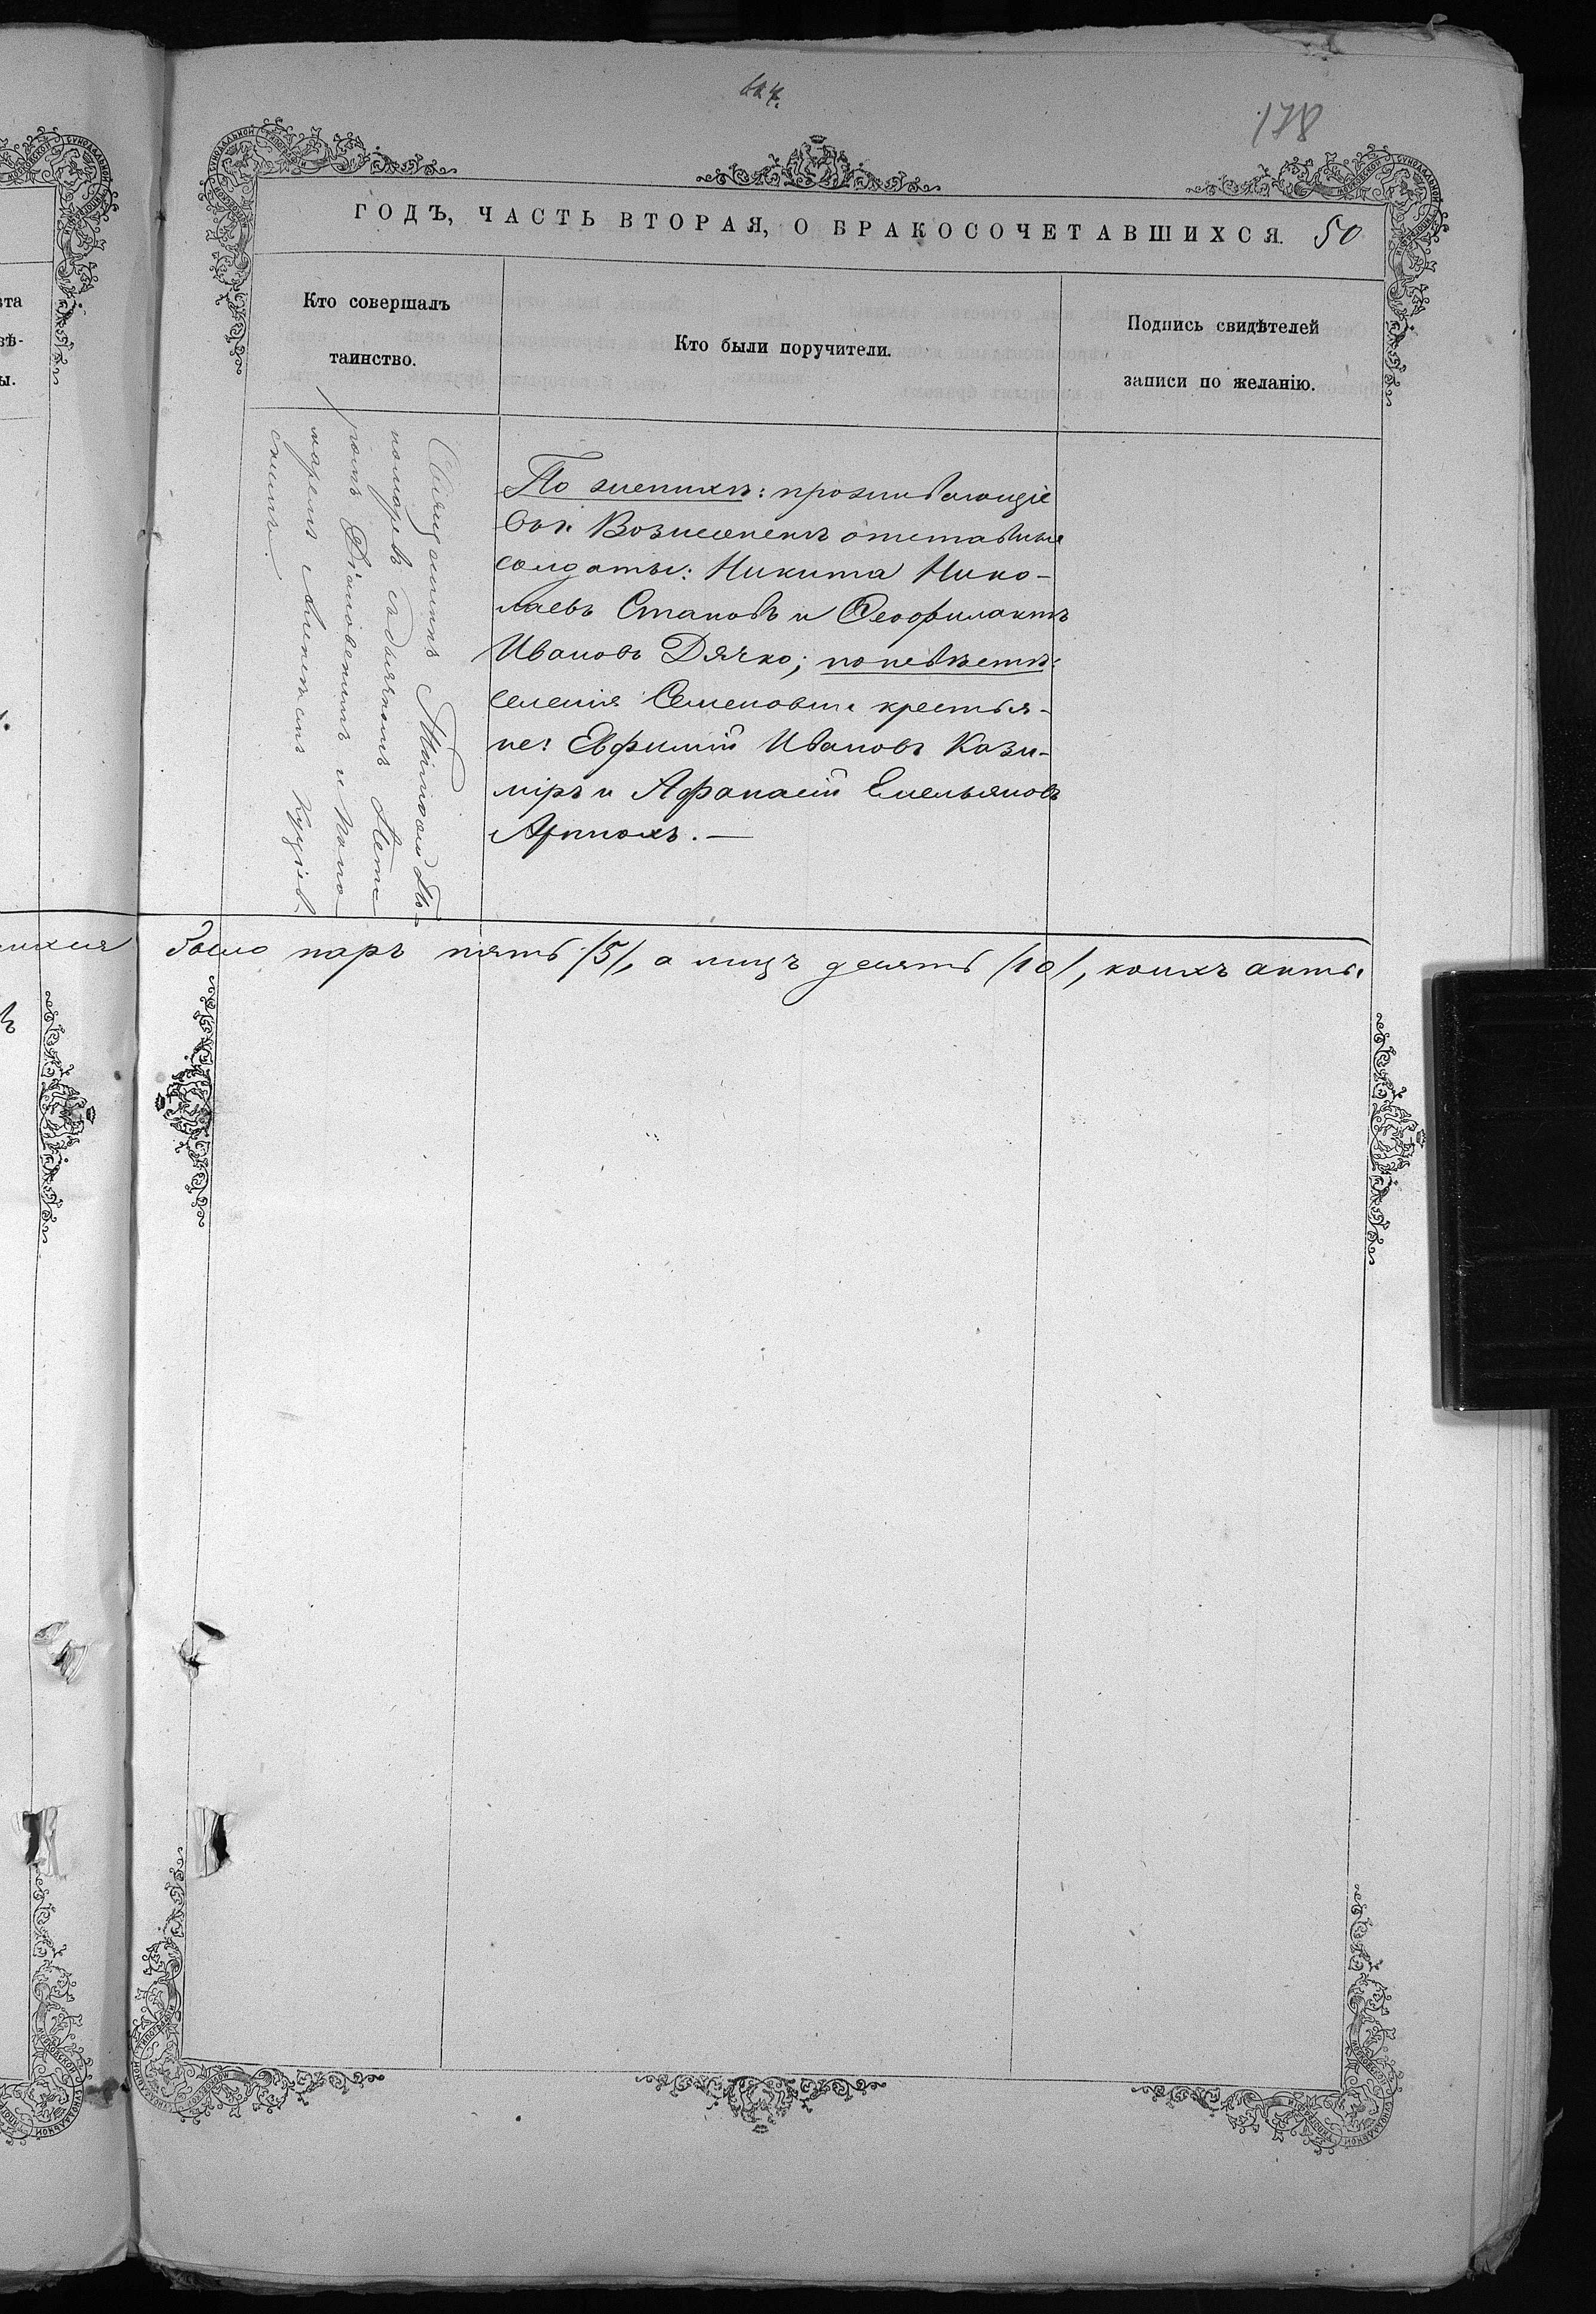 178
ГОДЪ, ЧАСТЬ ВТОРАЯ, О БРАКОСОЧЕТАВШИХСЯ. 50
Кто совершалъ
таинство.
Кто были поручители.
Подпись свидѣтелей
записи по желанію.
Священникъ
номоревъ съ дьячкомъ
ромъ Діановскимъ и Поно-
маремъ Викентіемъ
По женихѣ: проживающіе
въ г. Вознесенскѣ отставные
солдаты: Никита Нико-
лаевъ Стаповъ и Ѳеофилактъ
Ивановъ Дячко; по невѣстѣ:
селенія Семеновки крестья-
не: Евфимій Ивановъ Кази-
міръ и Афанасій Емельяновъ
было паръ пять /5/, а лицъ десять /10/, коихъ акты